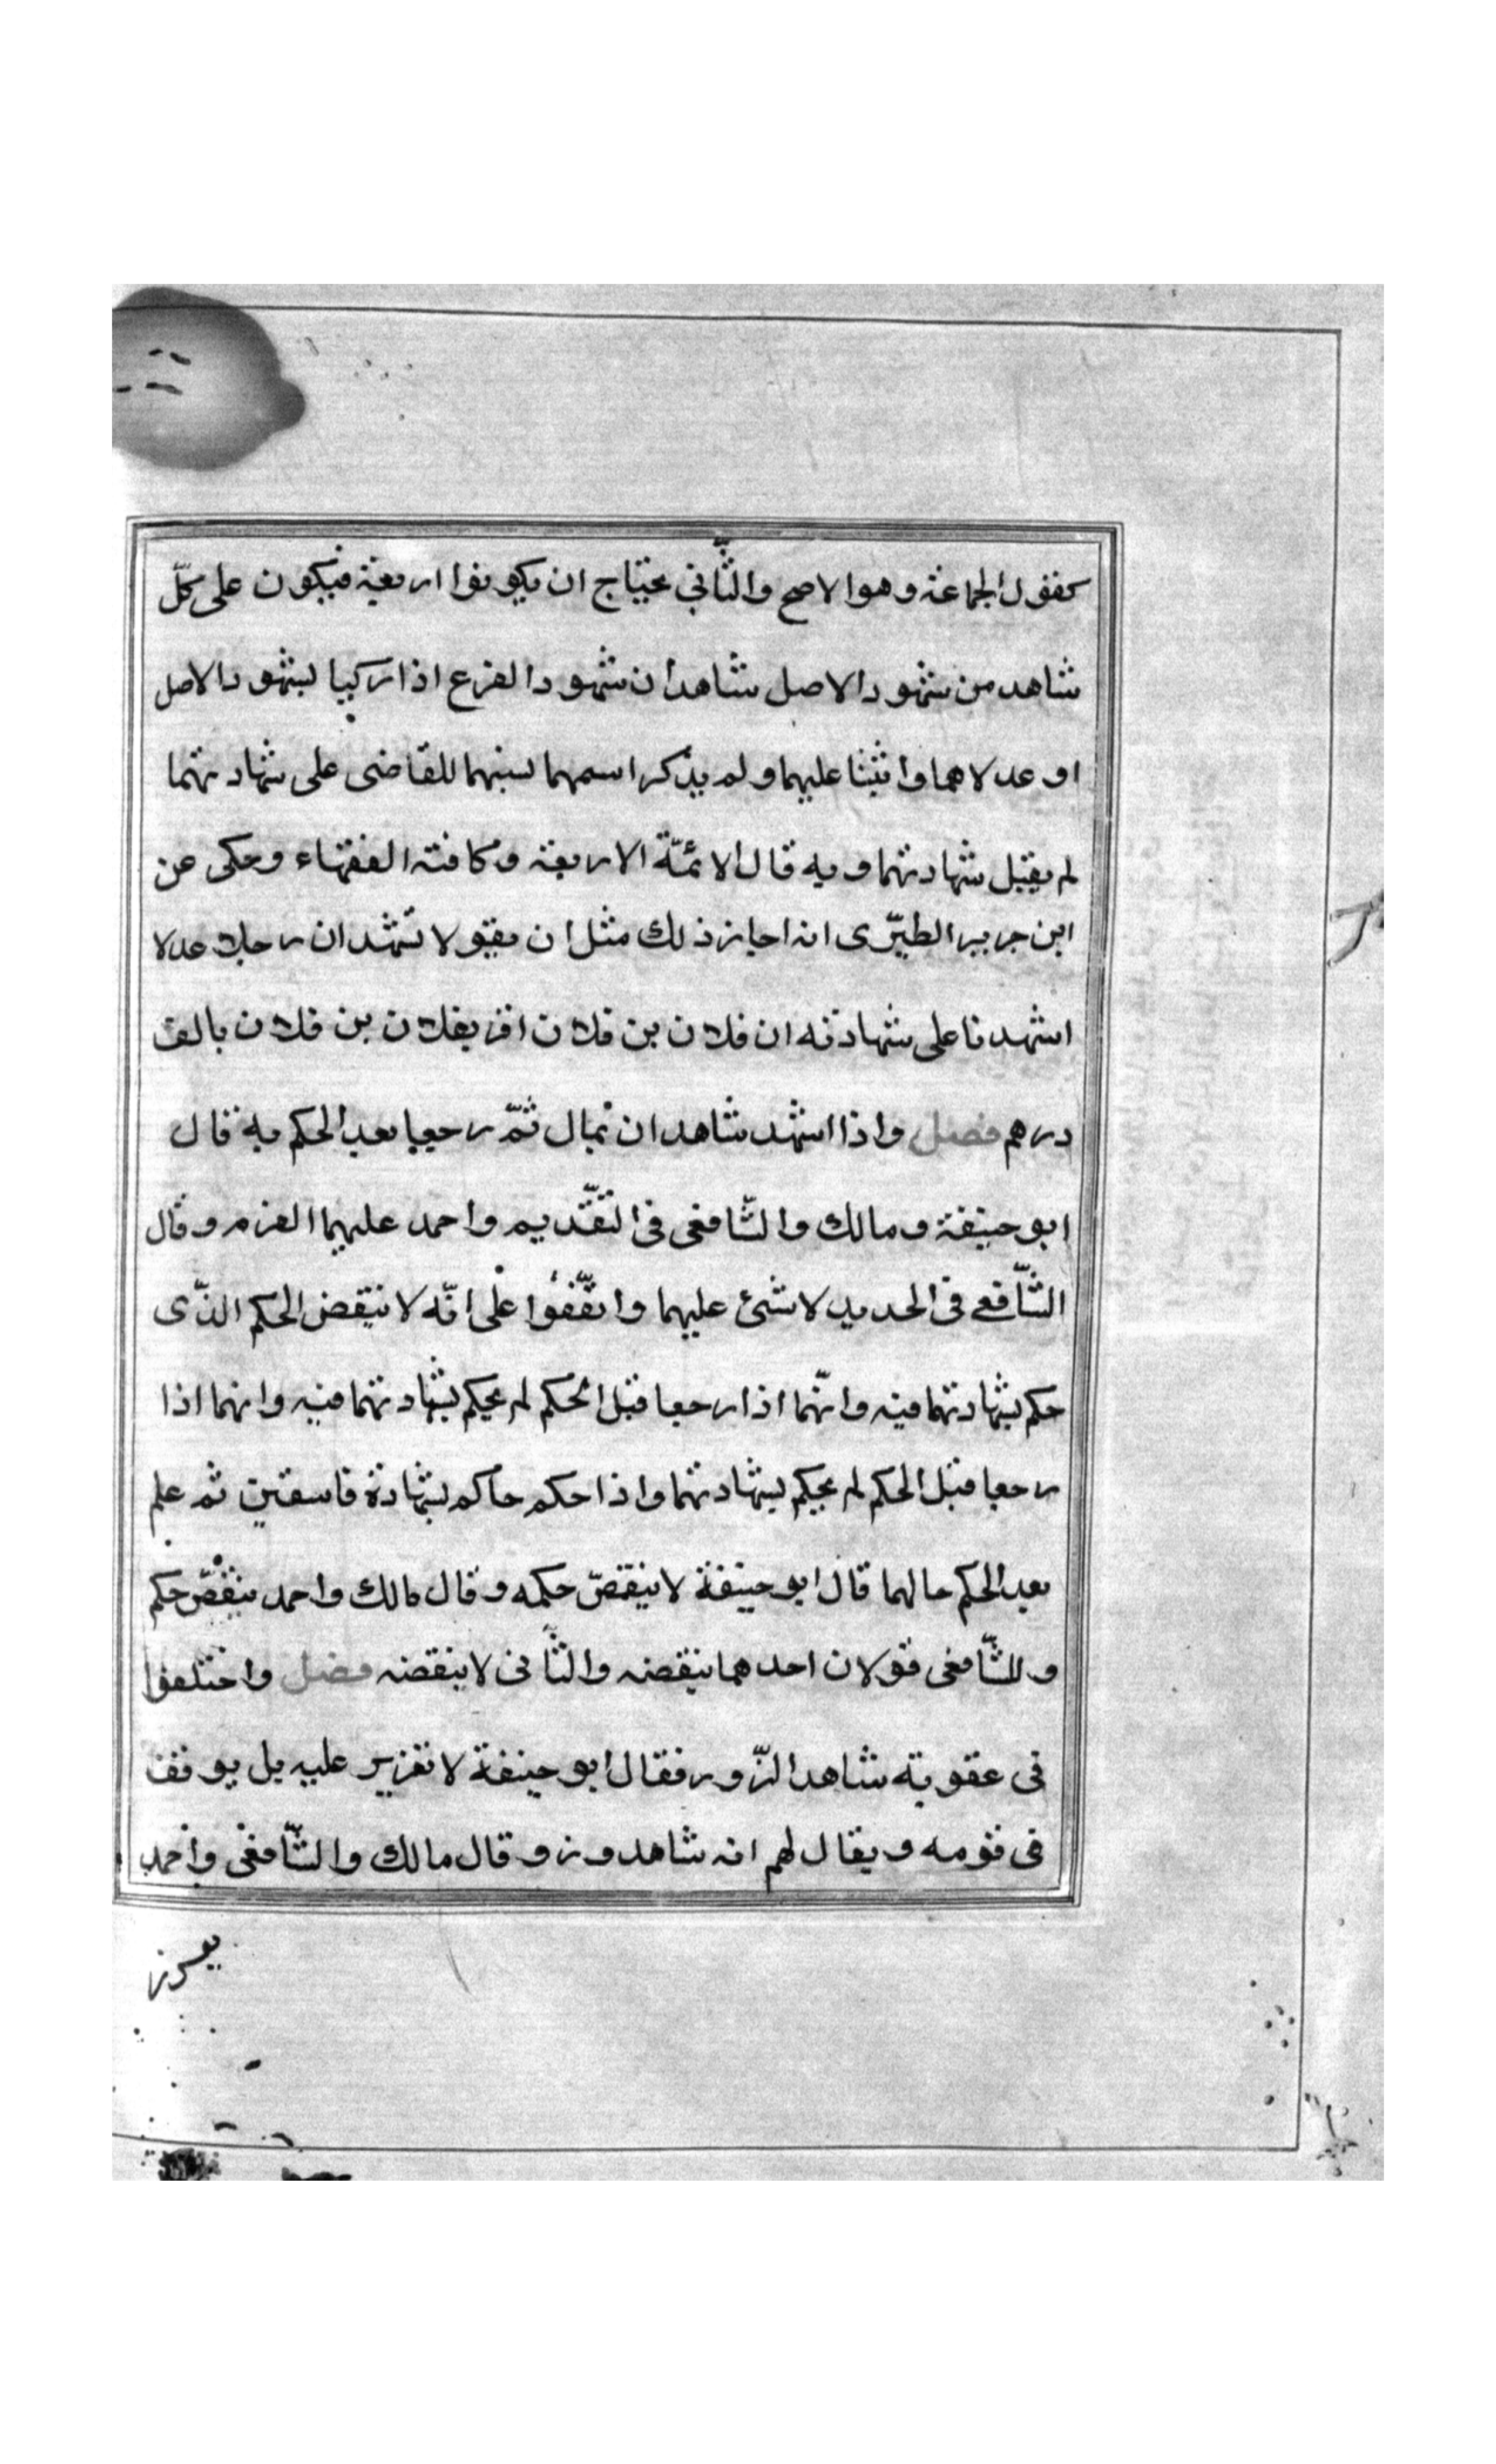 كقول الجماعة وهو الاصح والثّاني يحتاج ان يكونوا اربعة فيكون على كلّ
شاهد من شهود الاصل شاهدان شهود الفرع اذا زكيا لشهود الاصل
او عدلاهما واثبتا عليهما ولم يذكر اسمهما لسنهما للقاضى على شهادتهما
لم يقبل شهادتهما وبه قال الائمّة الاربعة وكافته الفقهاء وحكى عن
ابن جرير الطبرّى انه اجاز ذلك مثل ان يقولا نشهد ان رجلا عدلا
اشهدنا على شهادته ان فلان بن فلان اقر بفلان بن فلان بالف
درهم فصل واذا اشهد شاهدان بمال ثمّ رجعا بعد الحكم به قال
ابو حنيفة ومالك والشّافعى فى التقّديم واحمد عليهما الغرم وقال
الشّافعى فى الجديد لا شئ عليهما واتفّقوا على انّه لا ينقض الحكم الذّى
حكم بشهادتهما فيه وانّهما اذا رجعا قبل الحكم لم يحكم بشهادتهما فيه وانهما اذا
رجعا قبل الحكم لم يحكم بشهادتهما واذا حكم حاكم بشهادة فاسقين ثم علم
بعد الحكم حالهما قال ابو حنيفة لا ينقضّ حكمه وقال مالك واحمد ينقضّ حكم
وللشّافعى قولان احدهما ينقضه والثّانى لا ينقضه فصل واختلفوا
فى عقوبة شاهد الزّور فقال ابو حنيفة لا تعزير عليه بل يوقف
فى قومه ويقال لهم انه شاهد وز وقال مالك والشّافعى واحمد
يعزز